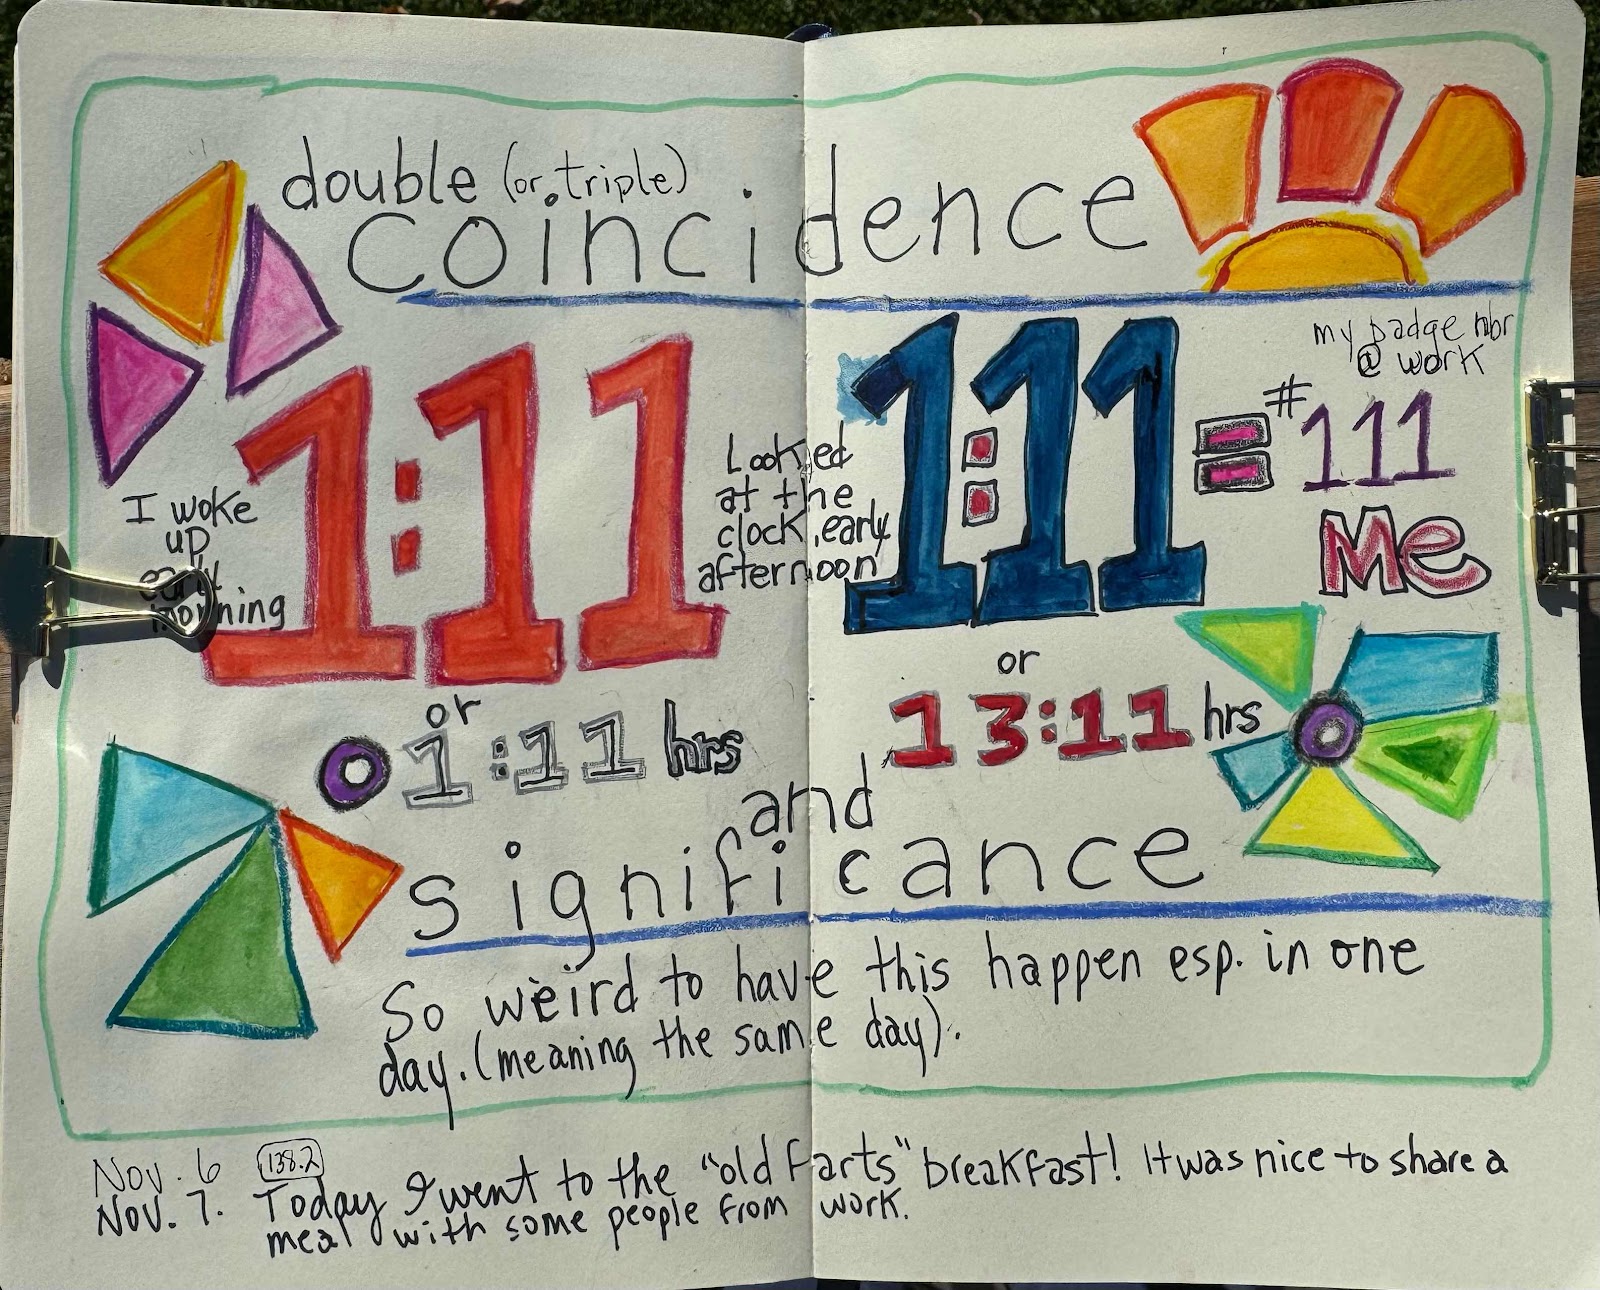 double (or triple)
coincidence
my badge nbr
@ work
1:11
1:11
=
#111
Me
I woke
up
early
morning
Looked
at the
clock, early
afternoon
or
01:11 hrs
or
13:11 hrs
and
significance
So weird to have this happen esp. in one
day. (meaning the same day).
Nov. 6 138.2
Nov. 7. Today I went to the "old Farts" breakfast! It was nice to share a
meal with some people from work.